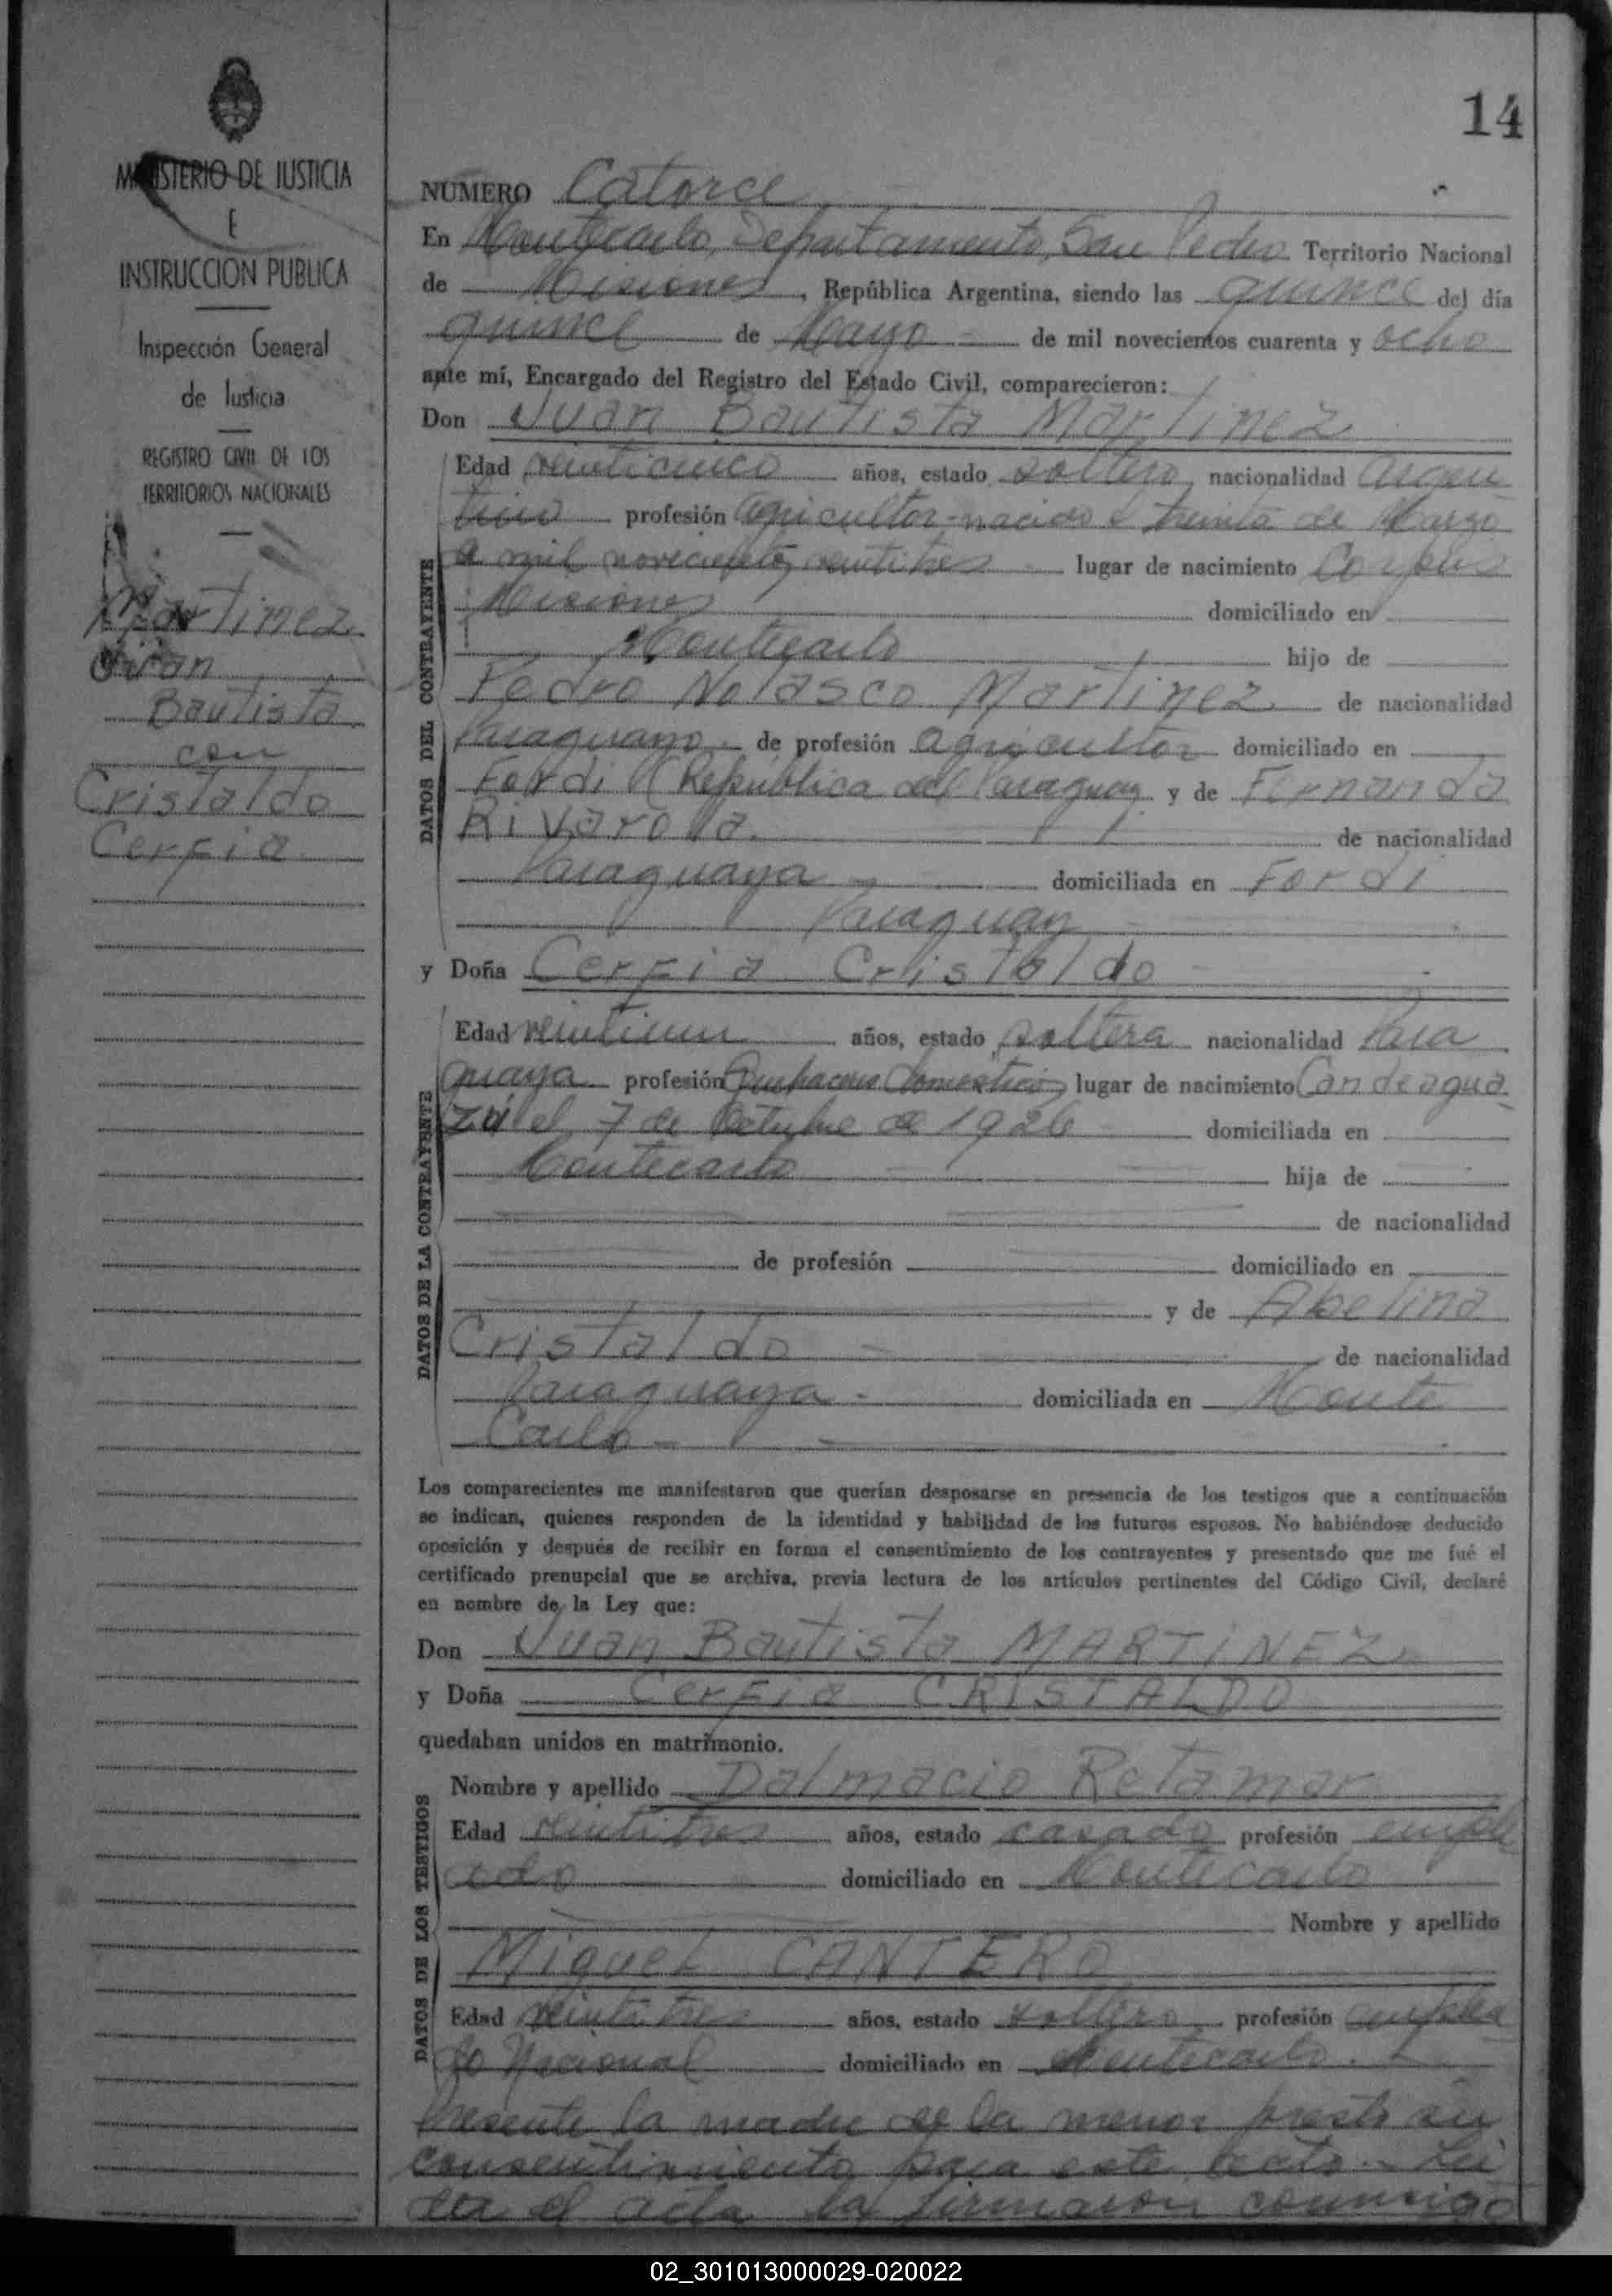 14
MINISTERIO DE JUSTICIA
E
INSTRUCCION PUBLICA
Inspección General
de Justicia
REGISTRO CIVIL DE LOS
TERRITORIOS NACIONALES
Martinez
Juan
Bautista
con
Cristaldo
Cerfia
NUMERO Catorce
En Montecarlo, Departamento, San Pedro Territorio Nacional
de Misiones, República Argentina, siendo las quince del día
quince de Mayo de mil novecientos cuarenta y ocho
ante mí, Encargado del Registro del Estado Civil, comparecieron:
Don Juan Bautista Martinez
DATOS DEL CONTRAYENTE
Edad veinticinco años, estado soltero nacionalidad argen
tino profesión agricultor-nacido el treinta de Marzo
de mil novecientos veintitres lugar de nacimiento Corpus
Misiones domiciliado en
Montecarlo hijo de
Pedro Nolasco Martinez de nacionalidad
Paraguayo de profesión agricultor domiciliado en
Fordi (República del Paraguay y de Fernanda
Rivarola. de nacionalidad
Paraguaya domiciliada en Fordi
Paraguay
y Doña Cerfia Cristaldo
DATOS DE LA CONTRAYENTE
Edad veintiun años, estado soltera nacionalidad Para
guaya profesión Quehaceres domesticos lugar de nacimiento Candeagua
zú el 7 de Octubre de 1926 domiciliada en
Montecarlo hija de
de nacionalidad
de profesión domiciliado en
y de Abelina
Cristaldo de nacionalidad
Paraguaya domiciliada en Monte
Carlo
Los comparecientes me manifestaron que querían desposarse en presencia de los testigos que a continuación
se indican, quienes responden de la identidad y habilidad de los futuros esposos. No habiéndose deducido
oposición y después de recibir en forma el consentimiento de los contrayentes y presentado que me fué el
certificado prenupcial que se archiva, previa lectura de los artículos pertinentes del Código Civil, declaré
en nombre de la Ley que:
Don Juan Bautista MARTINEZ
y Doña Cerfia CRISTALDO
quedaban unidos en matrimonio.
DATOS DE LOS TESTIGOS
Nombre y apellido Dalmacio Retamar
Edad veintitres años, estado casado profesión emple
ado domiciliado en Montecarlo
Nombre y apellido
Miguel CANTERO
Edad veintitres años, estado soltero profesión emplea
do Nacional domiciliado en Montecarlo.
Presente la madre de la menor presta su
consentimiento para este acto. Leí
da el acta la firmaron conmigo
02_301013000029-020022